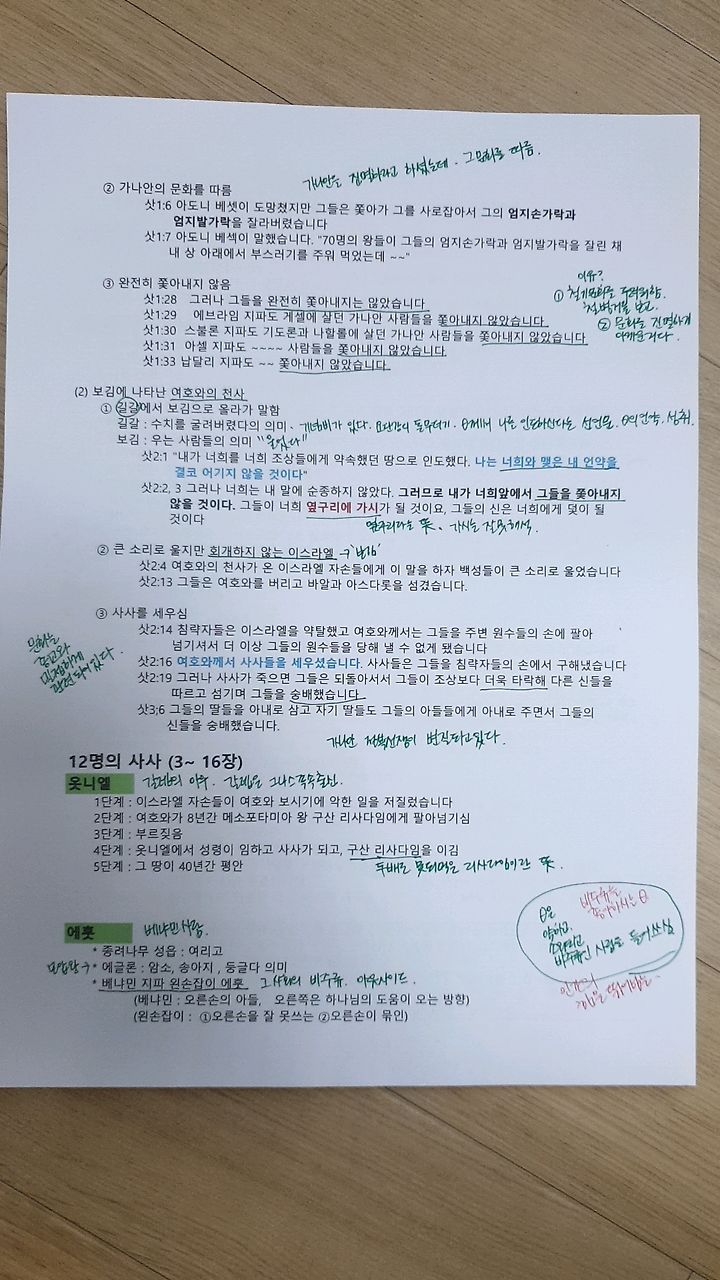 가나안을 진멸하라고 하셨는데. 그 문화를 따름.
② 가나안의 문화를 따름
삿1:6 아도니 베섹이 도망쳤지만 그들은 쫓아가 그를 사로잡아서 그의 엄지손가락과
엄지발가락을 잘라버렸습니다
삿1:7 아도니 베섹이 말했습니다. "70명의 왕들이 그들의 엄지손가락과 엄지발가락을 잘린 채
내 상 아래에서 부스러기를 주워 먹었는데 ~~"
③ 완전히 쫓아내지 않음
이유?
① 철기문화를 두려워함.
철병거를 보고.
② 문화는 진멸하게
아까운거다.
삿1:28 그러나 그들을 완전히 쫓아내지는 않았습니다
삿1:29 에브라임 지파도 게셀에 살던 가나안 사람들을 쫓아내지 않았습니다
삿1:30 스불론 지파도 기도론과 나할롤에 살던 가나안 사람들을 쫓아내지 않았습니다
삿1:31 아셀 지파도 ~~~~ 사람들을 쫓아내지 않았습니다
삿1:33 납달리 지파도 ~~ 쫓아내지 않았습니다
(2) 보김에 나타난 여호와의 천사
① 길갈에서 보김으로 올라가 말함
길갈 : 수치를 굴려버렸다의 의미 . 기념비가 있다. 요단강의 돌무더기.
보김 : 우는 사람들의 의미 "울었다"
삿2:1 "내가 너희를 너희 조상들에게 약속했던 땅으로 인도했다. 나는 너희와 맺은 내 언약을
결코 어기지 않을 것이다"
삿2:2, 3 그러나 너희는 내 말에 순종하지 않았다. 그러므로 내가 너희앞에서 그들을 쫓아내지
않을 것이다. 그들이 너희 옆구리에 가시가 될 것이요, 그들의 신은 너희에게 덫이 될
것이다
옆구리라는 뜻. 가시는 잘못해석.
② 큰 소리로 울지만 회개하지 않는 이스라엘
삿2:4 여호와의 천사가 온 이스라엘 자손들에게 이 말을 하자 백성들이 큰 소리로 울었습니다
삿2:13 그들은 여호와를 버리고 바알과 아스다롯을 섬겼습니다.
③ 사사를 세우심
삿2:14 침략자들은 이스라엘을 약탈했고 여호와께서는 그들을 주변 원수들의 손에 팔아
넘기셔서 더 이상 그들의 원수들을 당해 낼 수 없게 됐습니다
삿2:16 여호와께서 사사들을 세우셨습니다. 사사들은 그들을 침략자들의 손에서 구해냈습니다
삿2:19 그러나 사사가 죽으면 그들은 되돌아서서 그들이 조상보다 더욱 타락해 다른 신들을
따르고 섬기며 그들을 숭배했습니다.
삿3;6 그들의 딸들을 아내로 삼고 자기 딸들도 그들의 아들들에게 아내로 주면서 그들의
신들을 숭배했습니다.
문화는
종교와
밀접하게
관련 되어있다.
가나안 정복전쟁이 변질되고있다.
12명의 사사 (3~ 16장)
옷니엘 갈렙의 아우. 갈렙은 그나스족속출신.
1단계 : 이스라엘 자손들이 여호와 보시기에 악한 일을 저질렀습니다
2단계 : 여호와가 8년간 메소포타미아 왕 구산 리사다임에게 팔아넘기심
3단계 : 부르짖음
4단계 : 옷니엘에서 성령이 임하고 사사가 되고, 구산 리사다임을 이김
5단계 : 그 땅이 40년간 평안
두배로 못되먹은 리사다임이란 뜻.
에훗 베냐민사람.
* 종려나무 성읍 : 여리고
모압왕 * 에글론 : 암소, 송아지 , 둥글다 의미
* 베냐민 지파 왼손잡이 에훗 그사회의 비주류. 아웃사이드.
(베냐민 : 오른손의 아들, 오른쪽은 하나님의 도움이 오는 방향)
(왼손잡이 : ①오른손을 잘 못쓰는 ②오른손이 묶인)
비주류를
약하고.
소외되고
비주류인 사람을 들어쓰심
인간의